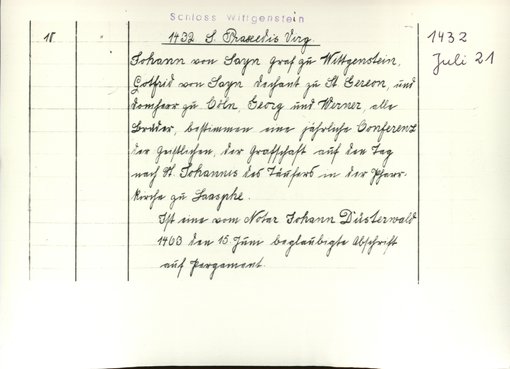 Schloss Wittgenstein
18. 1432 S. Praxedis Virg. 1432
Johann von Sayn Graf zu Wittgenstein, Juli 21
Gotfrid von Sayn Dechant zu St. Gereon, und
Domherr zu Cöln, Georg und Werner, alle
Brüder, bestimmen eine jährliche Conferenz
der Geistlichen, der Grafschaft auf den Tag
nach St. Johannis des Täufers in der Pfarr-
kirche zu Laasphe.
Ist eine vom Notar Johann Düsterwald
1463 den 15 Juni beglaubigte Abschrift
auf Pergament.